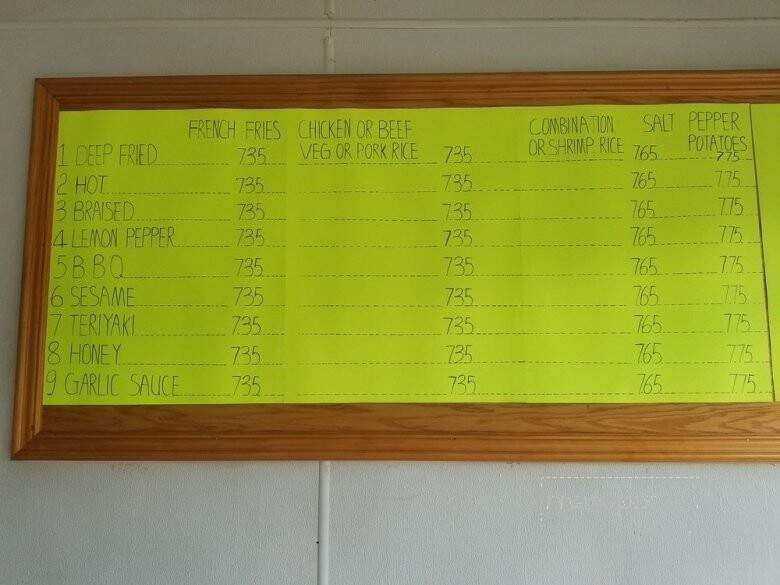 FRENCH FRIES CHICKEN OR BEEF COMBINATION SALT PEPPER
VEG OR PORK RICE OR SHRIMP RICE POTATOES
1 DEEP FRIED 735 735 765 775
2 HOT 735 735 765 775
3 BRAISED 735 735 765 775
4 LEMON PEPPER 735 735 765 775
5 B B Q 735 735 765 775
6 SESAME 735 735 765 775
7 TERIYAKI 735 735 765 775
8 HONEY 735 735 765 775
9 GARLIC SAUCE 735 735 765 775